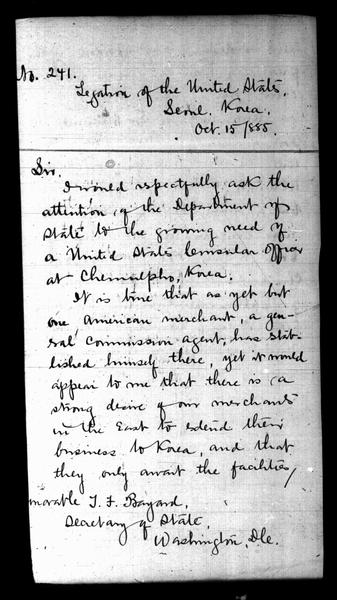 No. 241.
Legation of the United States.
Seoul. Korea.
Oct. 15/885.
Sir.
I would respectfully ask the
attention of the Department of
State to the growing need of
a United States Consular officer
at Chemulpho, Korea.
It is true that as yet but
one American merchant, a gen-
eral commission agent, has stab-
lished himself there, yet it would
appear to me that there is a
strong desire of our merchants
in the East to extend their
business to Korea, and that
they only await the facilities,
norable T. F. Bayard,
Secretary of State,
Washington,